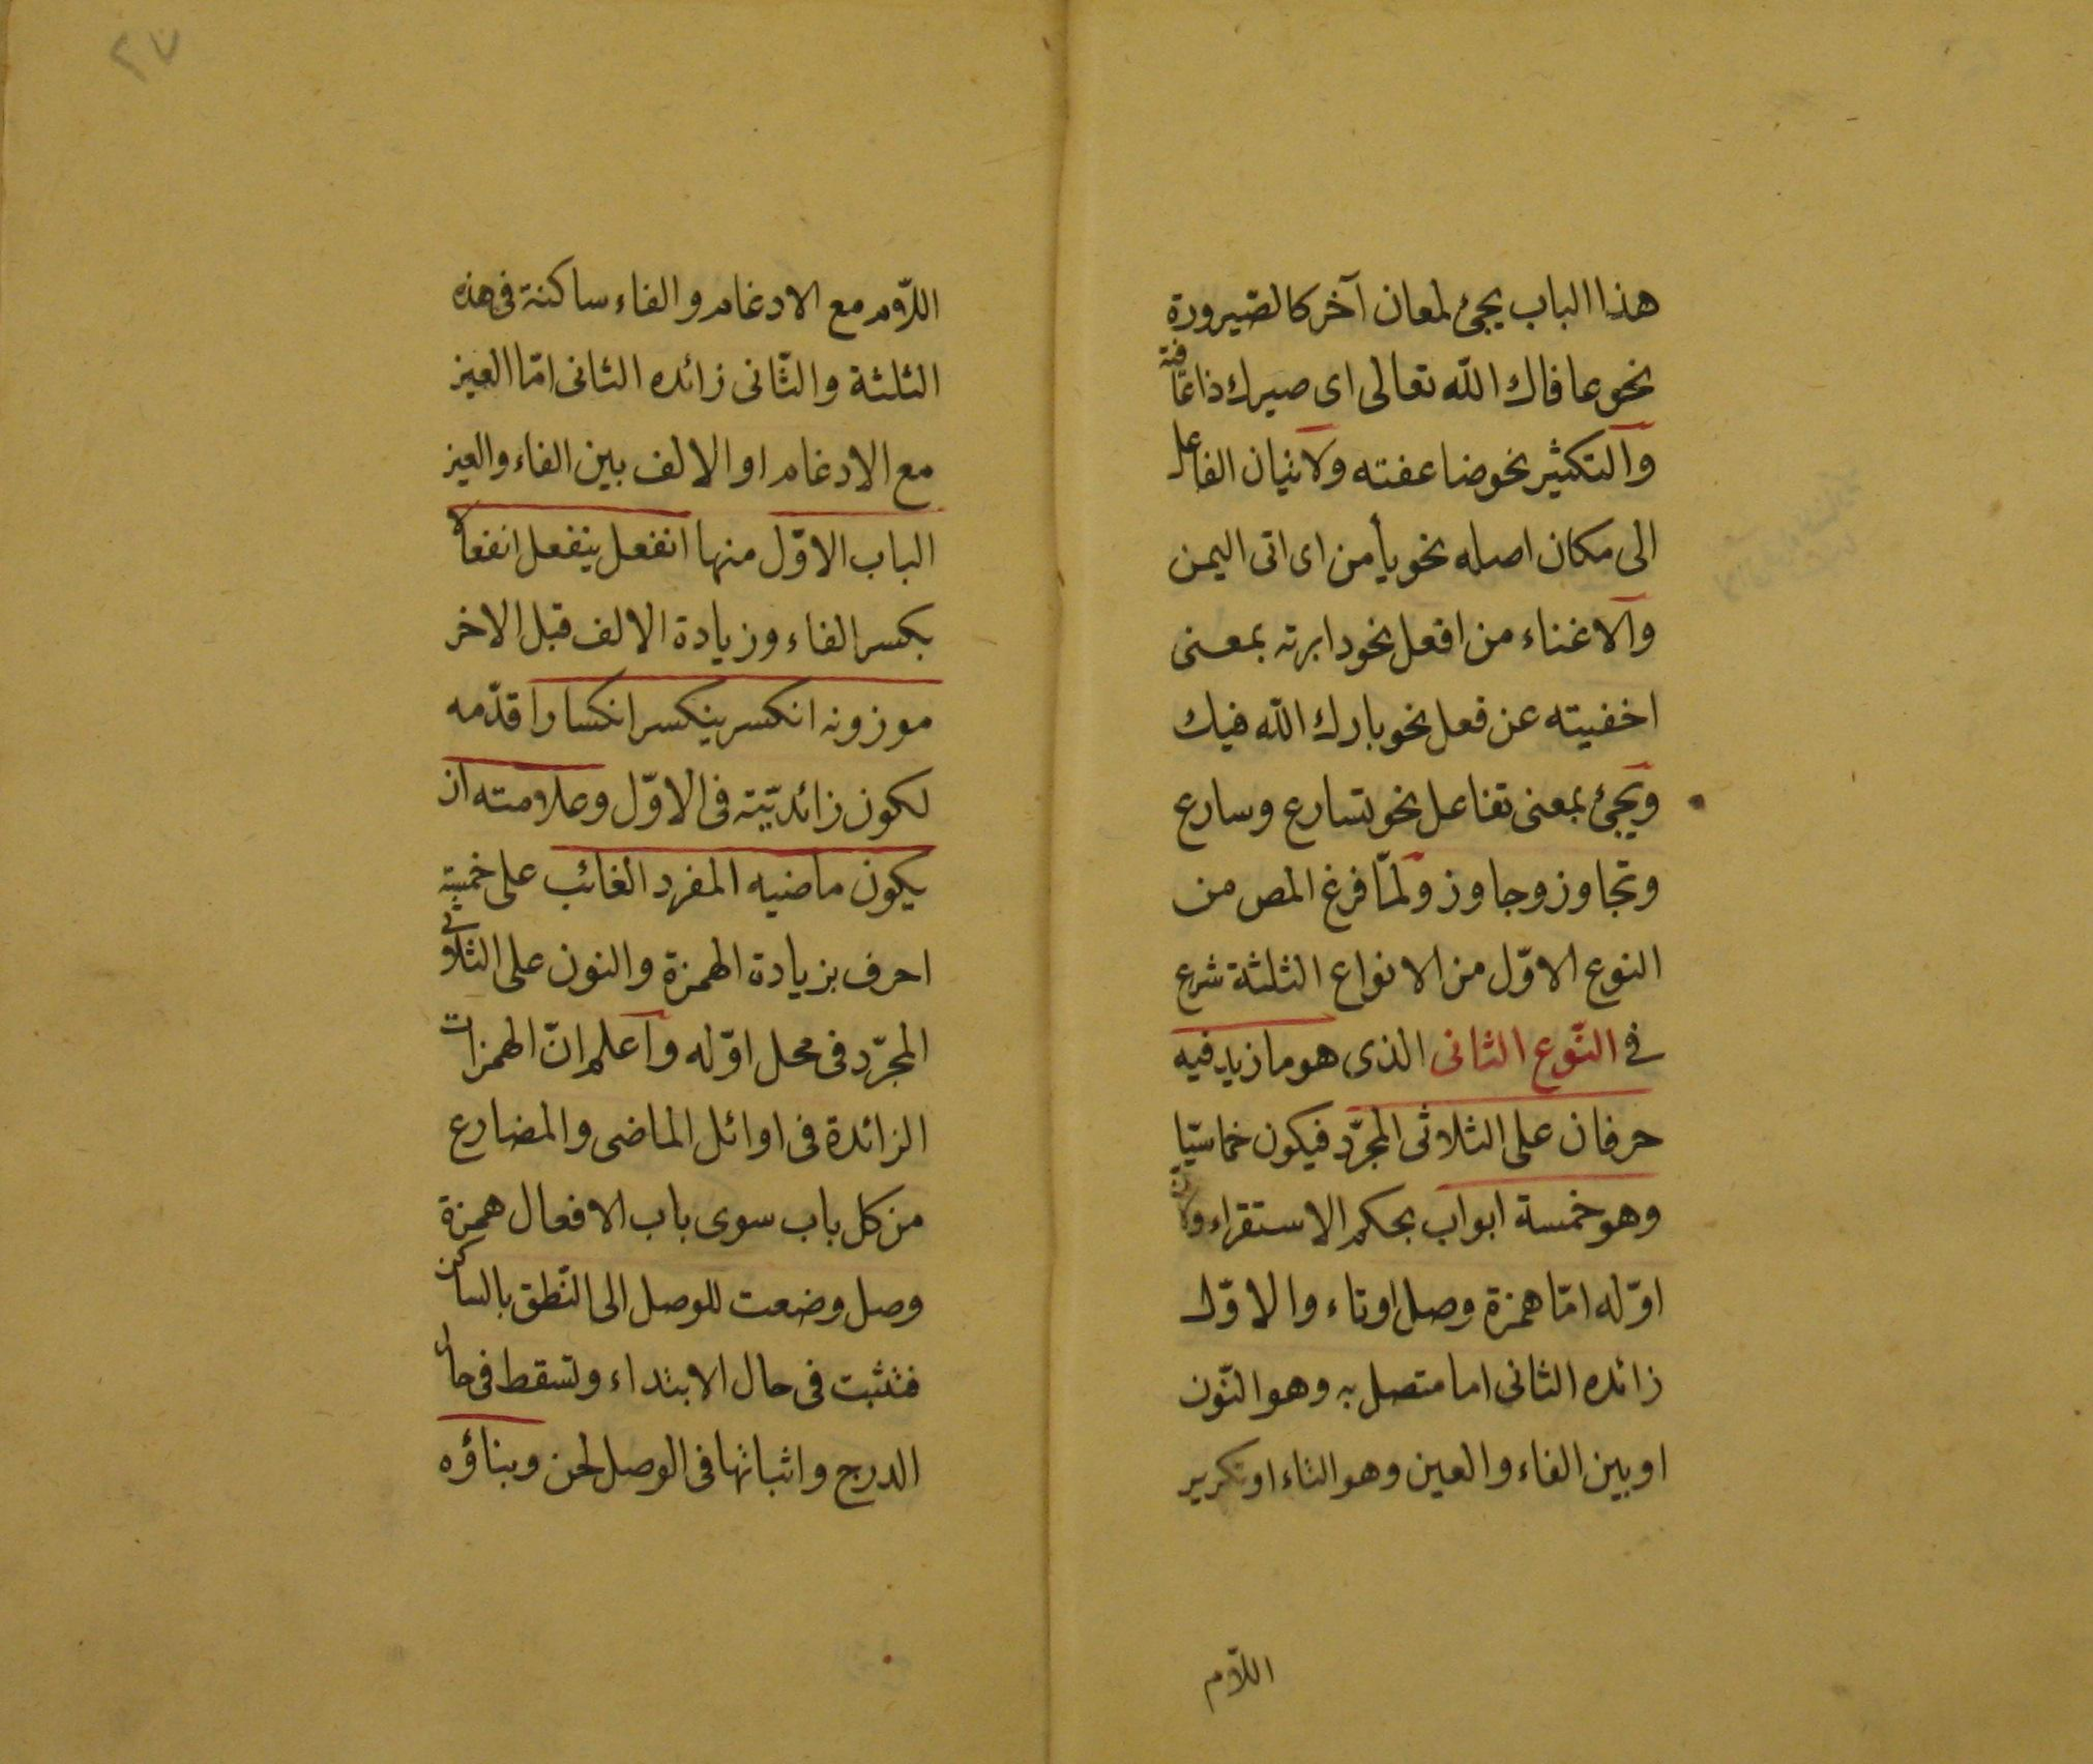 هذا الباب يجئ لمعان آخر كالصّيرورة
نحو عافاك اللّه تعالى اى صيرك ذا عافية
والتكثير نحو ضاعفته ولاتيان الفاعل
الى مكان اصله نحو يأمن اى اتى اليمن
والاغناء من افعل نحو دابرته بمعنى
اخفيته عن فعل نحو بارك اللّه فيك
ويجئ بمعنى تفاعل نحو تسارع وسارع
وتجاوز وجاوز ولمّا فرغ المص من
النوع الاوّل من الانواع الثلثة شرع
فى النّوع الثانى الذى هو ما زيد فيه
حرفان على الثلاثى المجرّد فيكون خماسيّا
وهو خمسة ابواب بحكم الاستقراء ولان
اوّله امّا همزة وصل او تاء والاوّل
زائده الثانى اما متصل به وهو النّون
او بين الفاء والعين وهو التاء او تكرير
اللاّم
٢٧
اللاّم مع الادغام والفاء ساكنة فى هذه
الثلثة والثّانى زائده الثانى امّا العين
مع الادغام او الالف بين الفاء والعين
الباب الاوّل منها انفعل ينفعل انفعالا
بكسر الفاء وزيادة الالف قبل الاخر
موزونه انكسر ينكسر انكسارا قدّمه
لكون زائديّته فى الاوّل وعلامته ان
يكون ماضيه المفرد الغائب على خمسة
احرف بزيادة الهمزة والنون على الثلاثى
المجرّد فى محل اوّله واعلم انّ الهمزات
الزائدة فى اوائل الماضى والمضارع
من كل باب سوى باب الافعال همزة
وصل وضعت للوصل الى النّطق بالساكن
فتثبت فى حال الابتداء وتسقط فى حال
الدرج واثباتها فى الوصل لحن وبناؤه